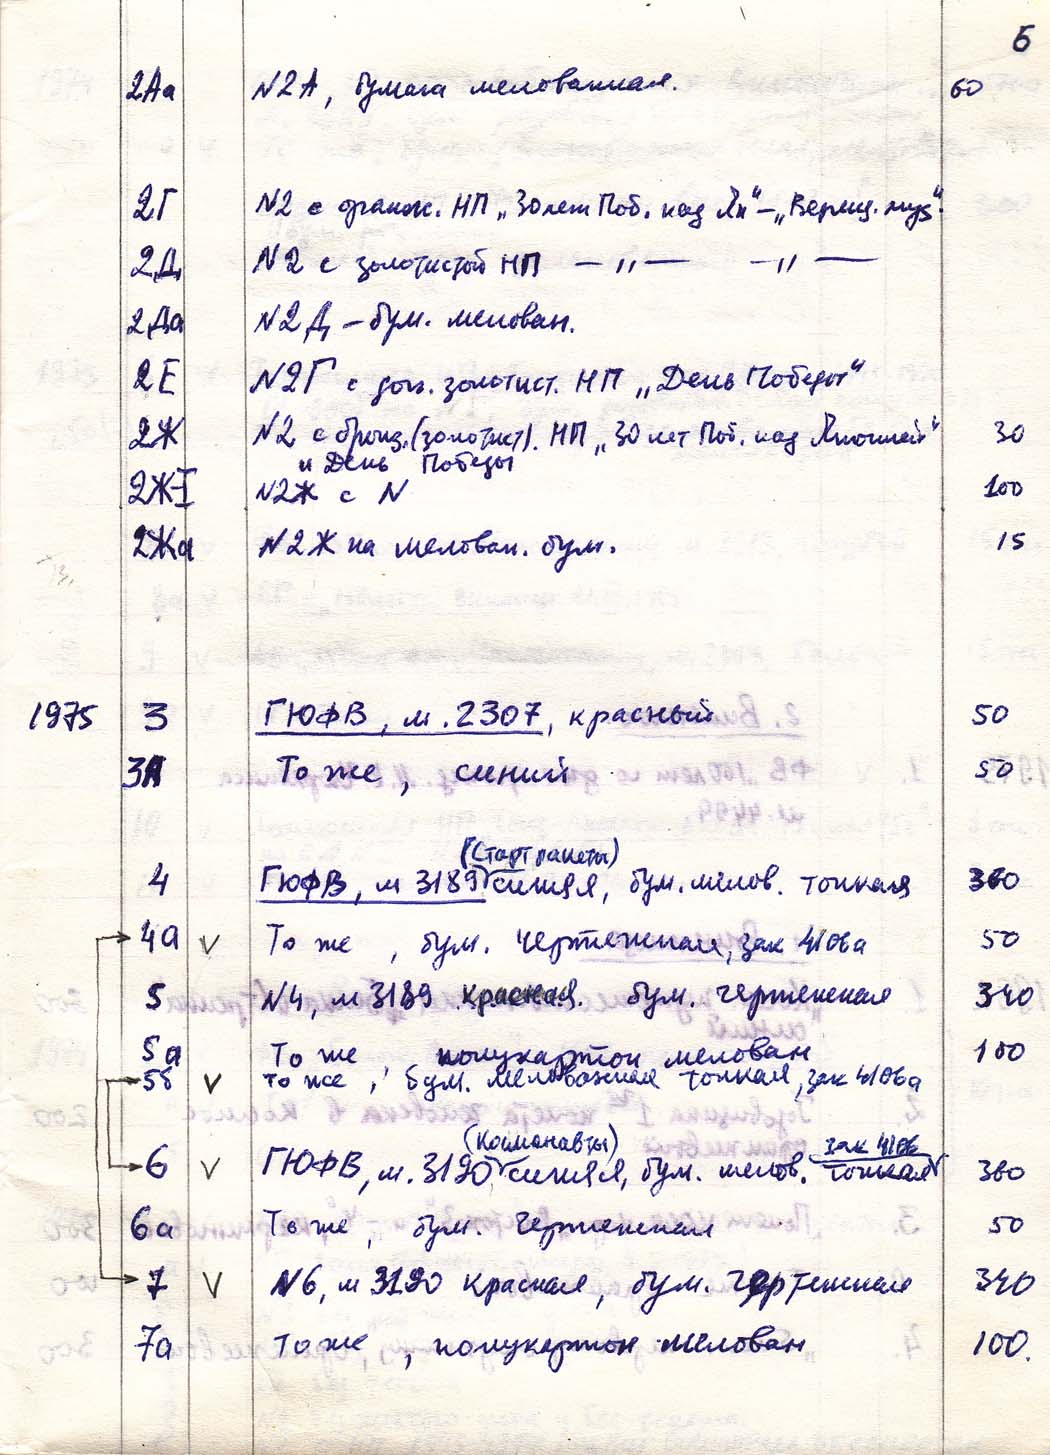 6
2Аа N2А, бумага мелованная. 60
2Г N2 с оранж. НП „30 лет Поб. над Яп“ – „Верещ. муз“.
2Д N2 с золотистой НП — „ — — „ —
2Да N2Д – бум. мелован.
2Е N2Г с доп. золотист. НП „День Победы“
2Ж N2 с бронз. (золотист). НП „30 лет Поб. над Японией“ 30
и День Победы
2Ж-I N2Ж с N 100
2Жа N2Ж на мелован. бум. 15
1975 3 ГЮФВ, м. 2307, красный 50
3А То же, синий 50
(Старт ракеты)
4 ГЮФВ, м 3189 синяя, бум. мелов. тонкая 360
4а V То же, бум. чертежная, зак 410ва 50
5 N4, м 3189 красная. бум. чертежная 340
5а То же, полукартон мелован 100
5б V то же, бум. мелованная тонкая, зак 410ва
(Космонавты) зак 410в
6 V ГЮФВ, м. 3190 синяя, бум. мелов. тонкая 360
6а То же, бум. чертежная 50
7 V N6, м 3190 красная, бум. чертежная 340
7а То же, полукартон мелован 100.